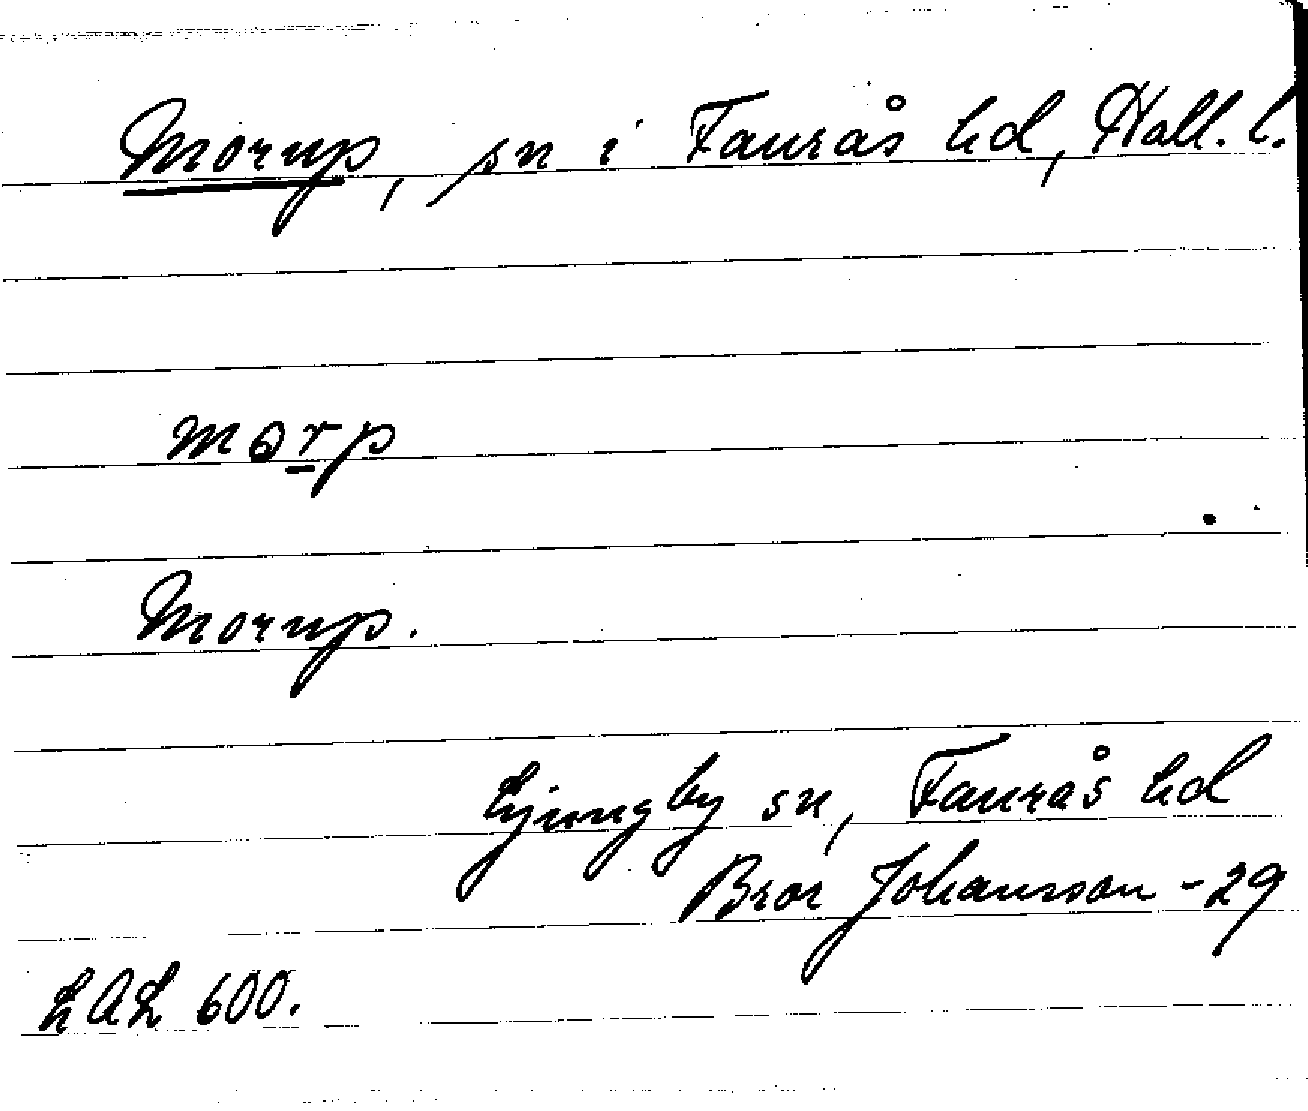 Morup, sn i Faurås hd, Hall. l.
mɷrp
Morup.
Ljungby sn, Faurås hd
Bror Johansson -29
LAL 600.